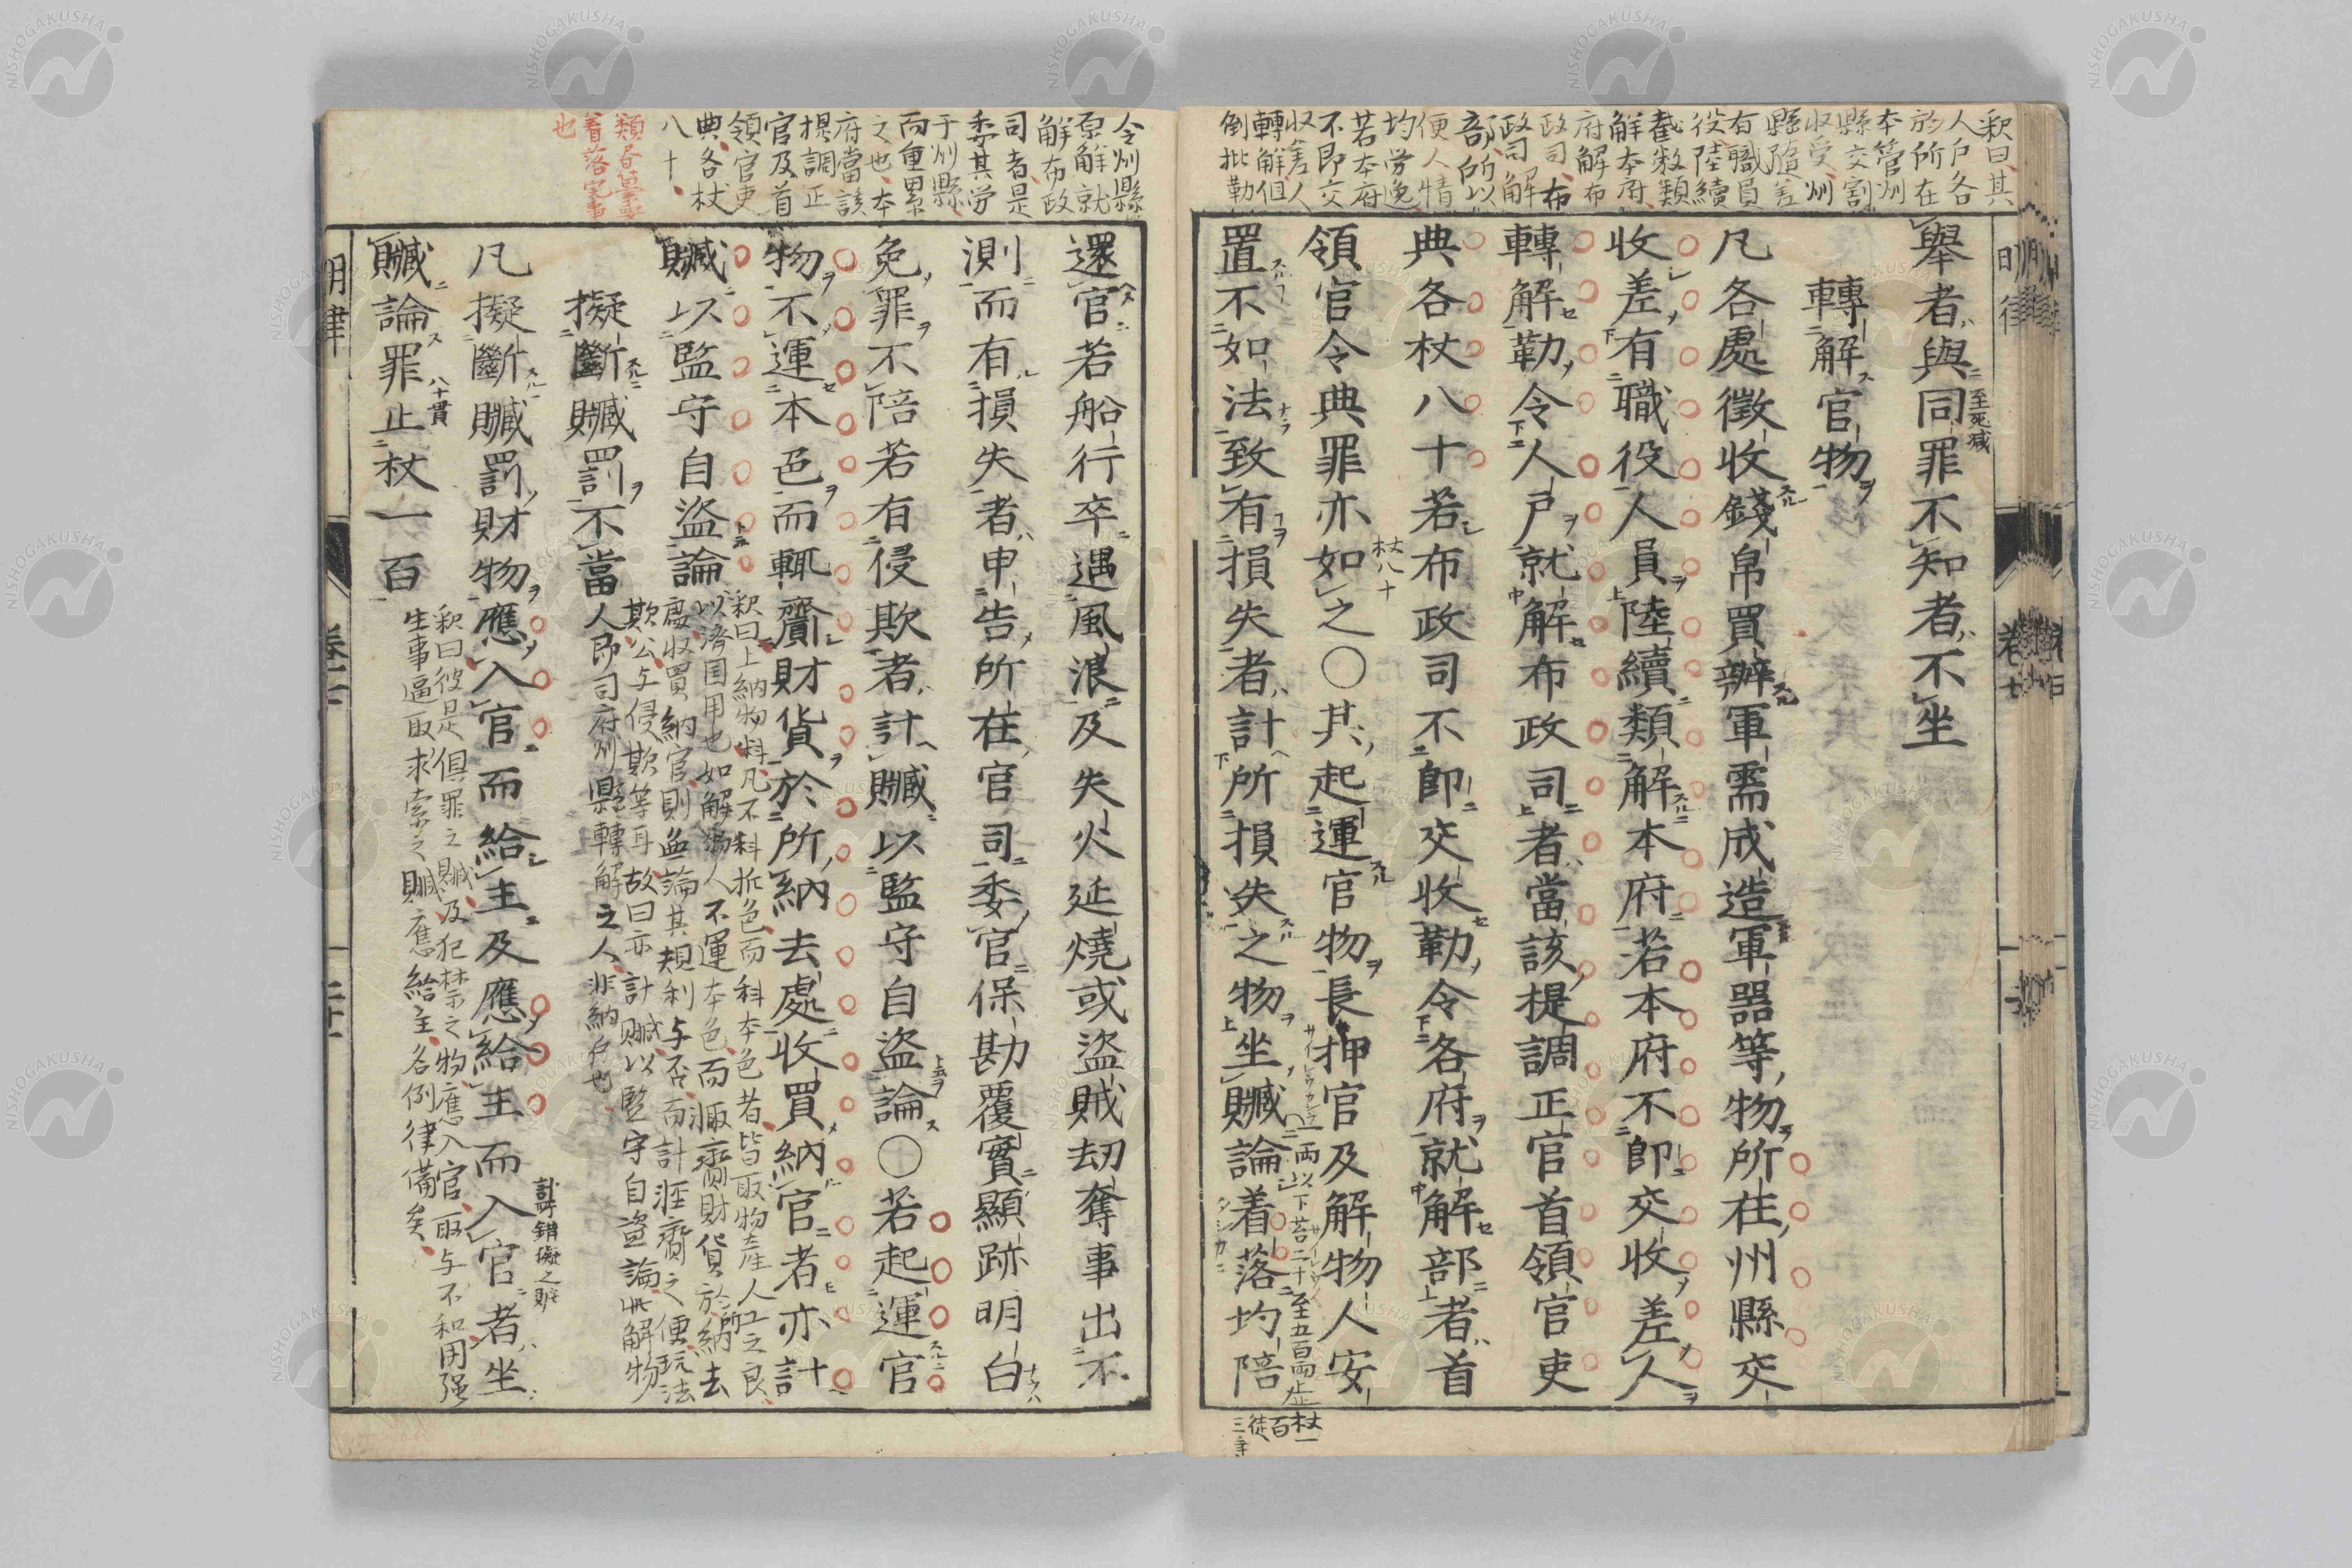 釈曰其
人戸各
於所在
本管州
縣交割
收受州
縣隨差
有職員
役陸續
截数類
解本府
府解布
政司布
政司解
部所以
便人情
均労逸
若本府
不即交
收差人
轉解但
倒批勒
舉者與同罪不知者不坐
至死減
轉解官物
凡各處徵收錢帛買辦軍需成造軍器等物所在州縣交
收差有職役人員陸續類解本府若本府不即交收差人
轉解勒令人戸就解布政司者當該提調正官首領官吏
典各杖八十若布政司不即交收勒令各府就解部者首
領官令典罪亦如之〇其起運官物長押官及解物人安
杖八十
置不如法致有損失者計所損失之物坐贓論着落均陪
一兩以下笞二十至五百兩止杖一百徒三年
明律
令州縣
原解就
解布政
司者是
委其労
于州縣
而重累
之也本
府當該
提調正
官及首
領官吏
典各杖
八十
着落完事
也
還官若船行卒遇風浪及失火延燒或盜賊劫奪事出不
測而有損失者申告所在官司委官保勘覆實顯跡明白
免罪不陪若有侵欺者計贓以監守自盜論〇若起運官
物不運本色而輒齎財貨於所納去處收買納官者亦計
贓以監守自盜論
釈曰上納物料凡不科折色而科本色者皆取物産人工之良
以濟国用也如解物人不運本色而輒齎財貨於所納去
處收買納官則無論其規利与否而計涯齎之便玩法
欺公与侵欺等耳故曰亦計贓以監守自盜論此解物
人即司府州縣轉解之人非納戸也
擬斷贓罰不當
凡擬斷贓罰財物應入官而給主及應給主而入官者坐
計錯擬之贓
贓論罪止杖一百
八十貫
釈曰彼是俱罪之贓及犯禁之物應入官取与不和用强
生事逼取求索之贓應給主各例律備矣
明律